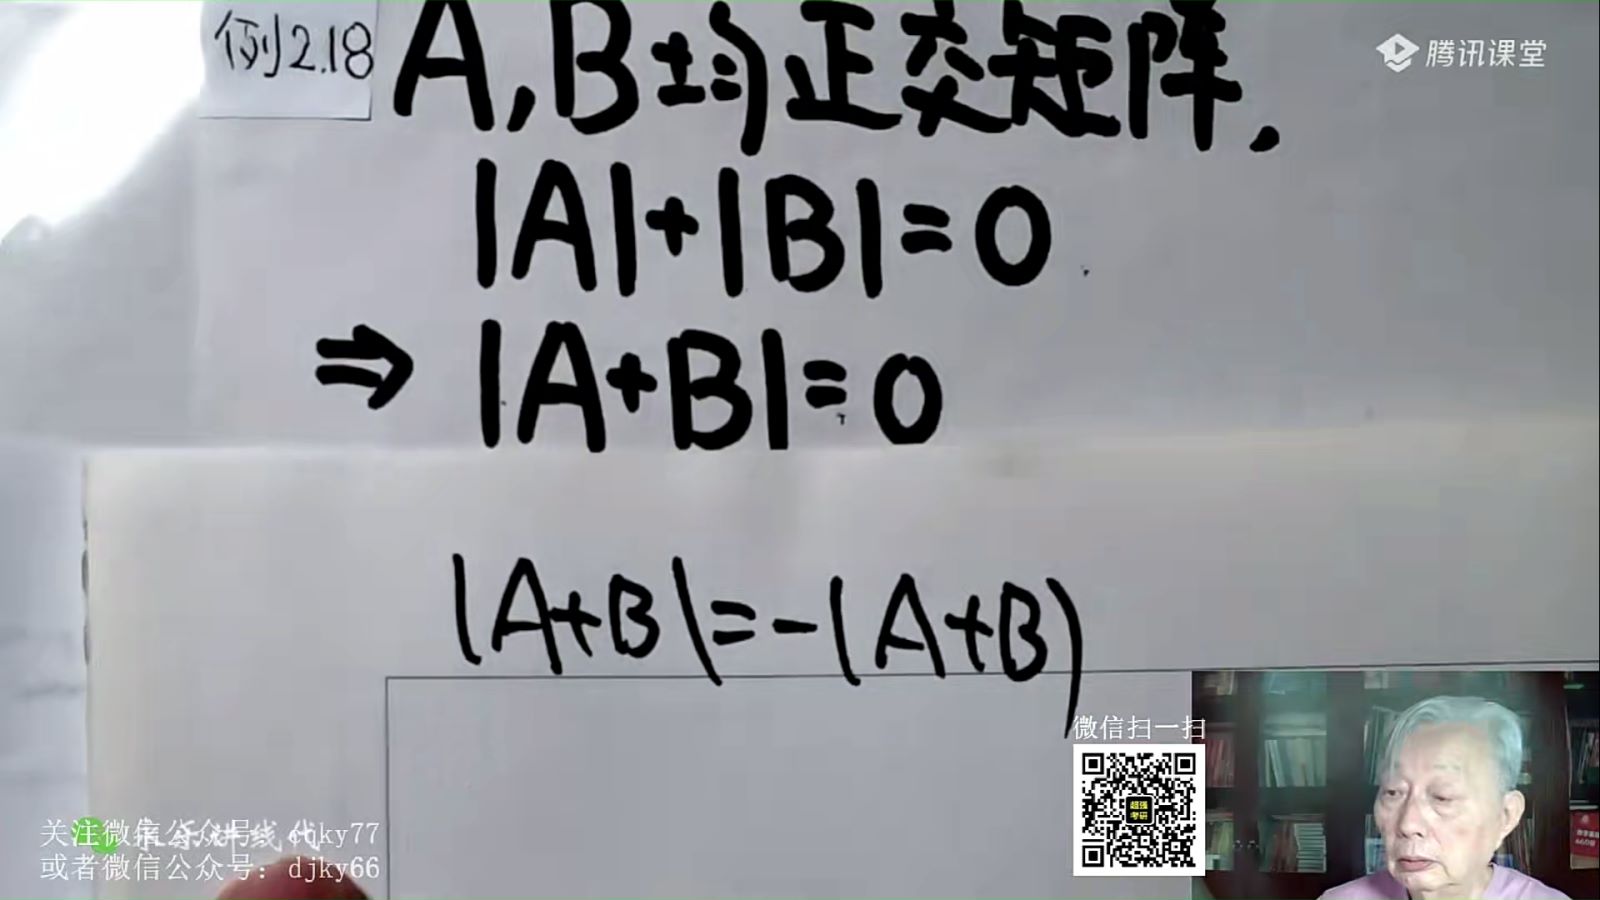 例2.18 A,B均正交矩阵,
腾讯课堂
|A|+|B|=0
⇒ |A+B|=0
|A+B|=-|A+B)
微信扫一扫
超强
考研
关注微信公众号: cqky77
或者微信公众号: djky66